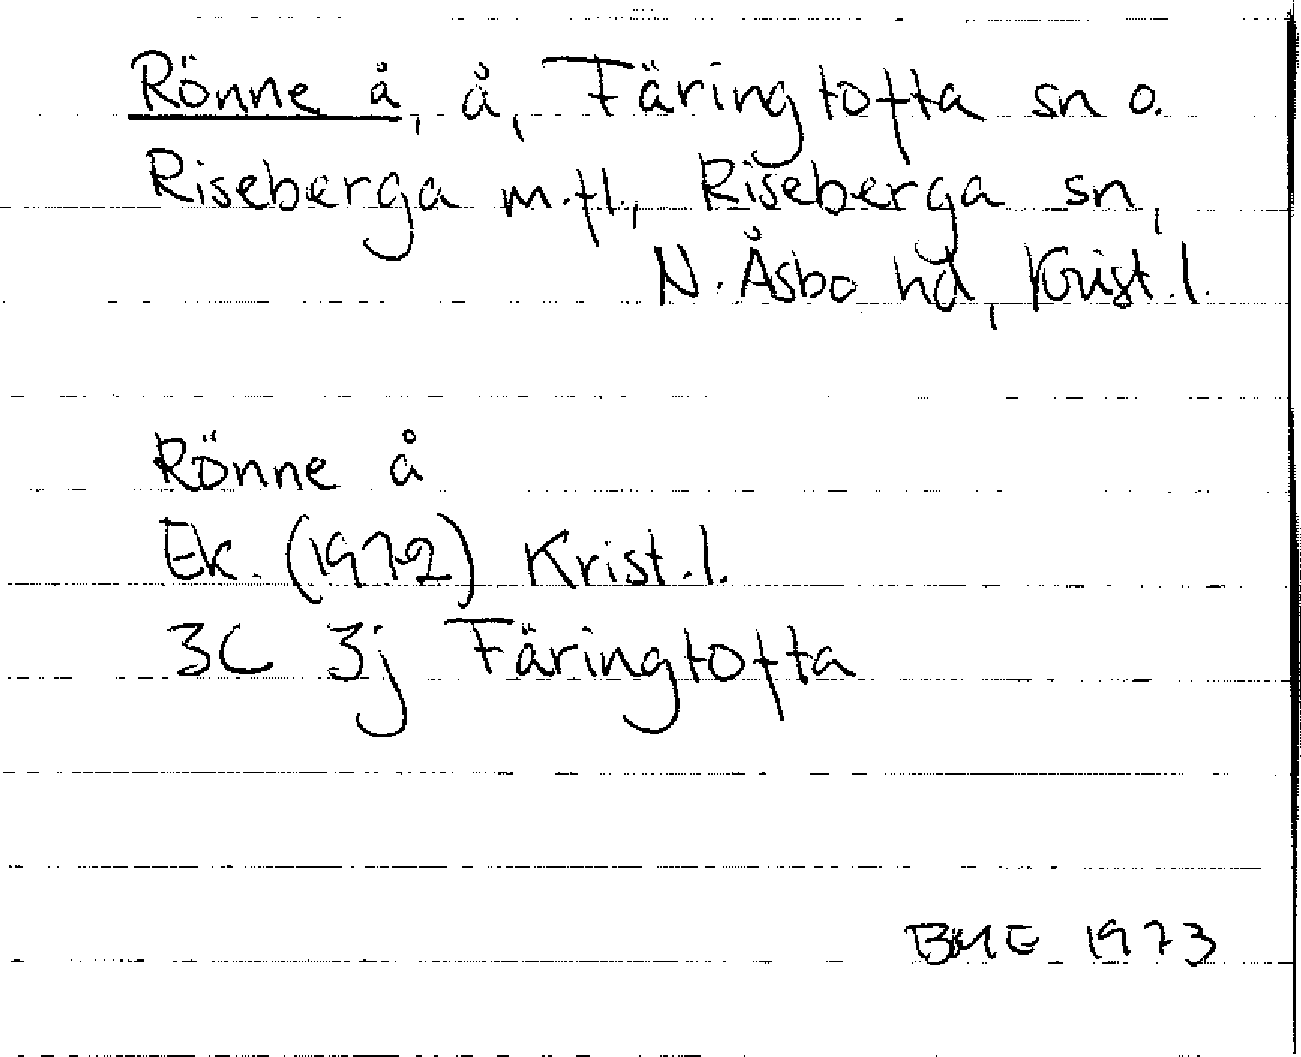 Rönne å, å, Färingtofta sn o.
Riseberga m.fl., Riseberga sn,
N. Åsbo hd, Krist.l.
Rönne å
Ek. (1972) Krist.l.
3C 3j Färingtofta
BME 1973